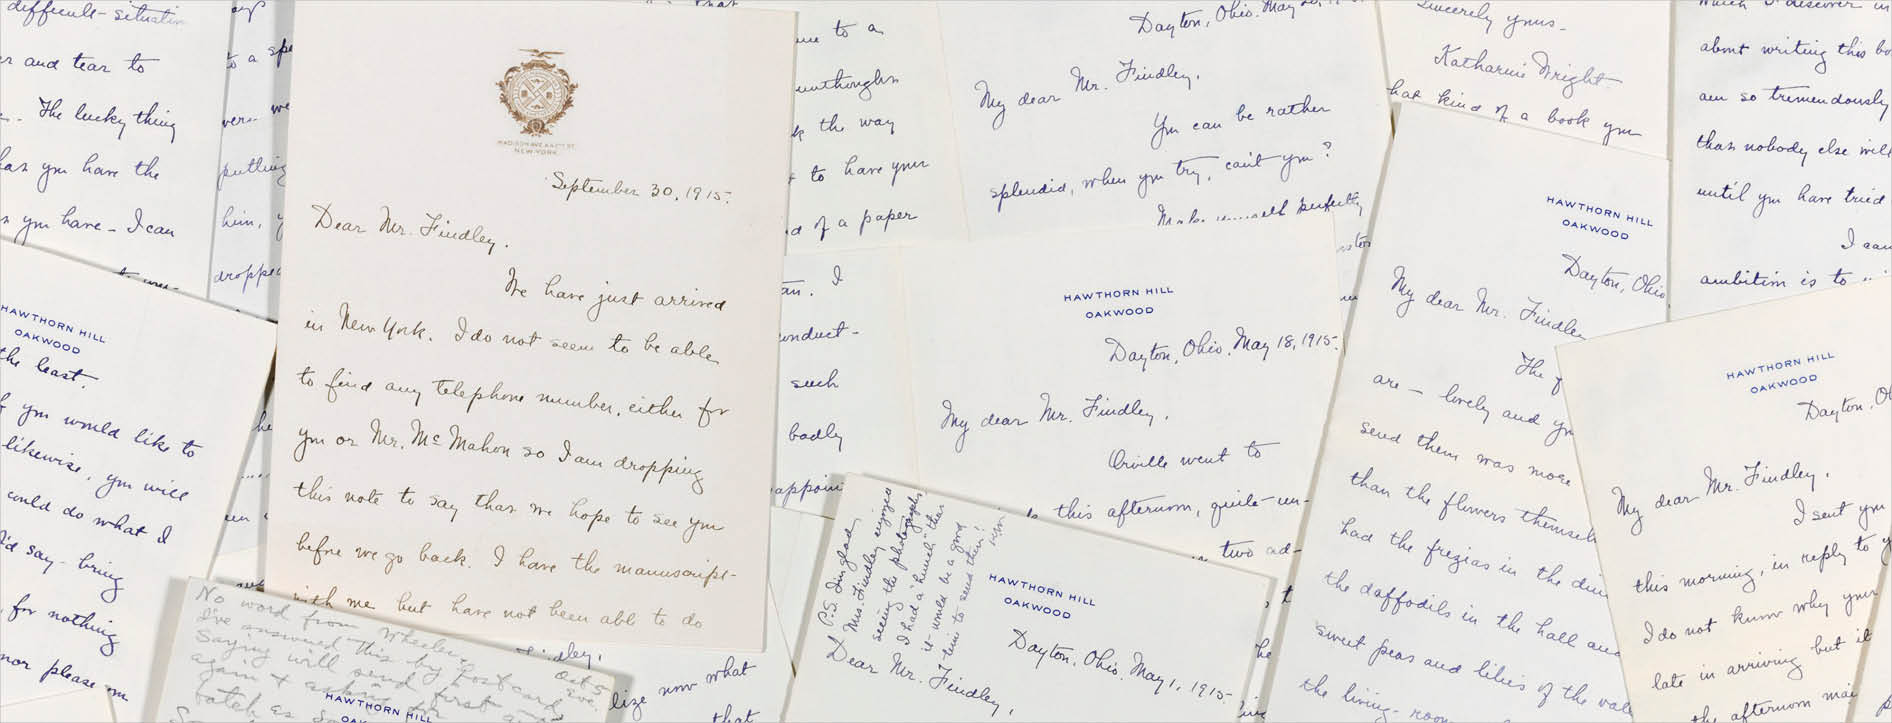 difficult-situation
r and tear to
The lucky thing
has you have the
s you have - I can
to a
putting
him,
HAWTHORN HILL
OAKWOOD
the least.
you would like to
likewise, you will
could do what I
I'd say - bring
for nothing
nor please
MADISON AVE & 42ND ST.
NEW YORK.
September 30, 1915.
Dear Mr. Findley.
We have just arrived
in New York. I do not seem to be able
to find any telephone number, either for
you or Mr. McMahon so I am dropping
this note to say that we hope to see you
before we go back. I have the manuscript-
with me but have not been able to do
No word from Wheeler.
I've answered this by postcard
Saying will send first
again & asking for
batch as
Oct 5
Eve.
HAWTHORN HILL
to a
the way
to have your
of a paper
I
conduct-
such
badly
lize now what
that
Dayton, Ohio. May
My dear Mr. Findley.
You can be rather
splendid, when you try, can't you?
perfectly
HAWTHORN HILL
OAKWOOD
Dayton, Ohio. May 18, 1915.
My dear Mr. Findley.
Orville went to
this afternoon, quite un-
two ad-
P.S. I'm glad
Mrs. Findley enjoyed
seeing the photographs.
I had a "hunch" that
it would be a good
time to send them!
K.W.
HAWTHORN HILL
OAKWOOD
Dayton, Ohio. May 1, 1915.
Dear Mr. Findley,
Sincerely yours-
Katharine Wright.
hat kind of a book you
HAWTHORN HILL
OAKWOOD
Dayton, Ohio
My dear Mr. Findley
The
are - lovely and
send them was more
than the flowers themsel
had the frezias in the din
the daffodils in the hall and
sweet peas and lilies of the val
the living-room
which I discover in
about writing this bo
am so tremendously
than nobody else will
until you have tried
I can
ambition is to
HAWTHORN HILL
OAKWOOD
Dayton, O
My dear Mr. Findley.
I sent you
this morning, in reply to y
I do not know why your
late in arriving but it
the afternoon mai